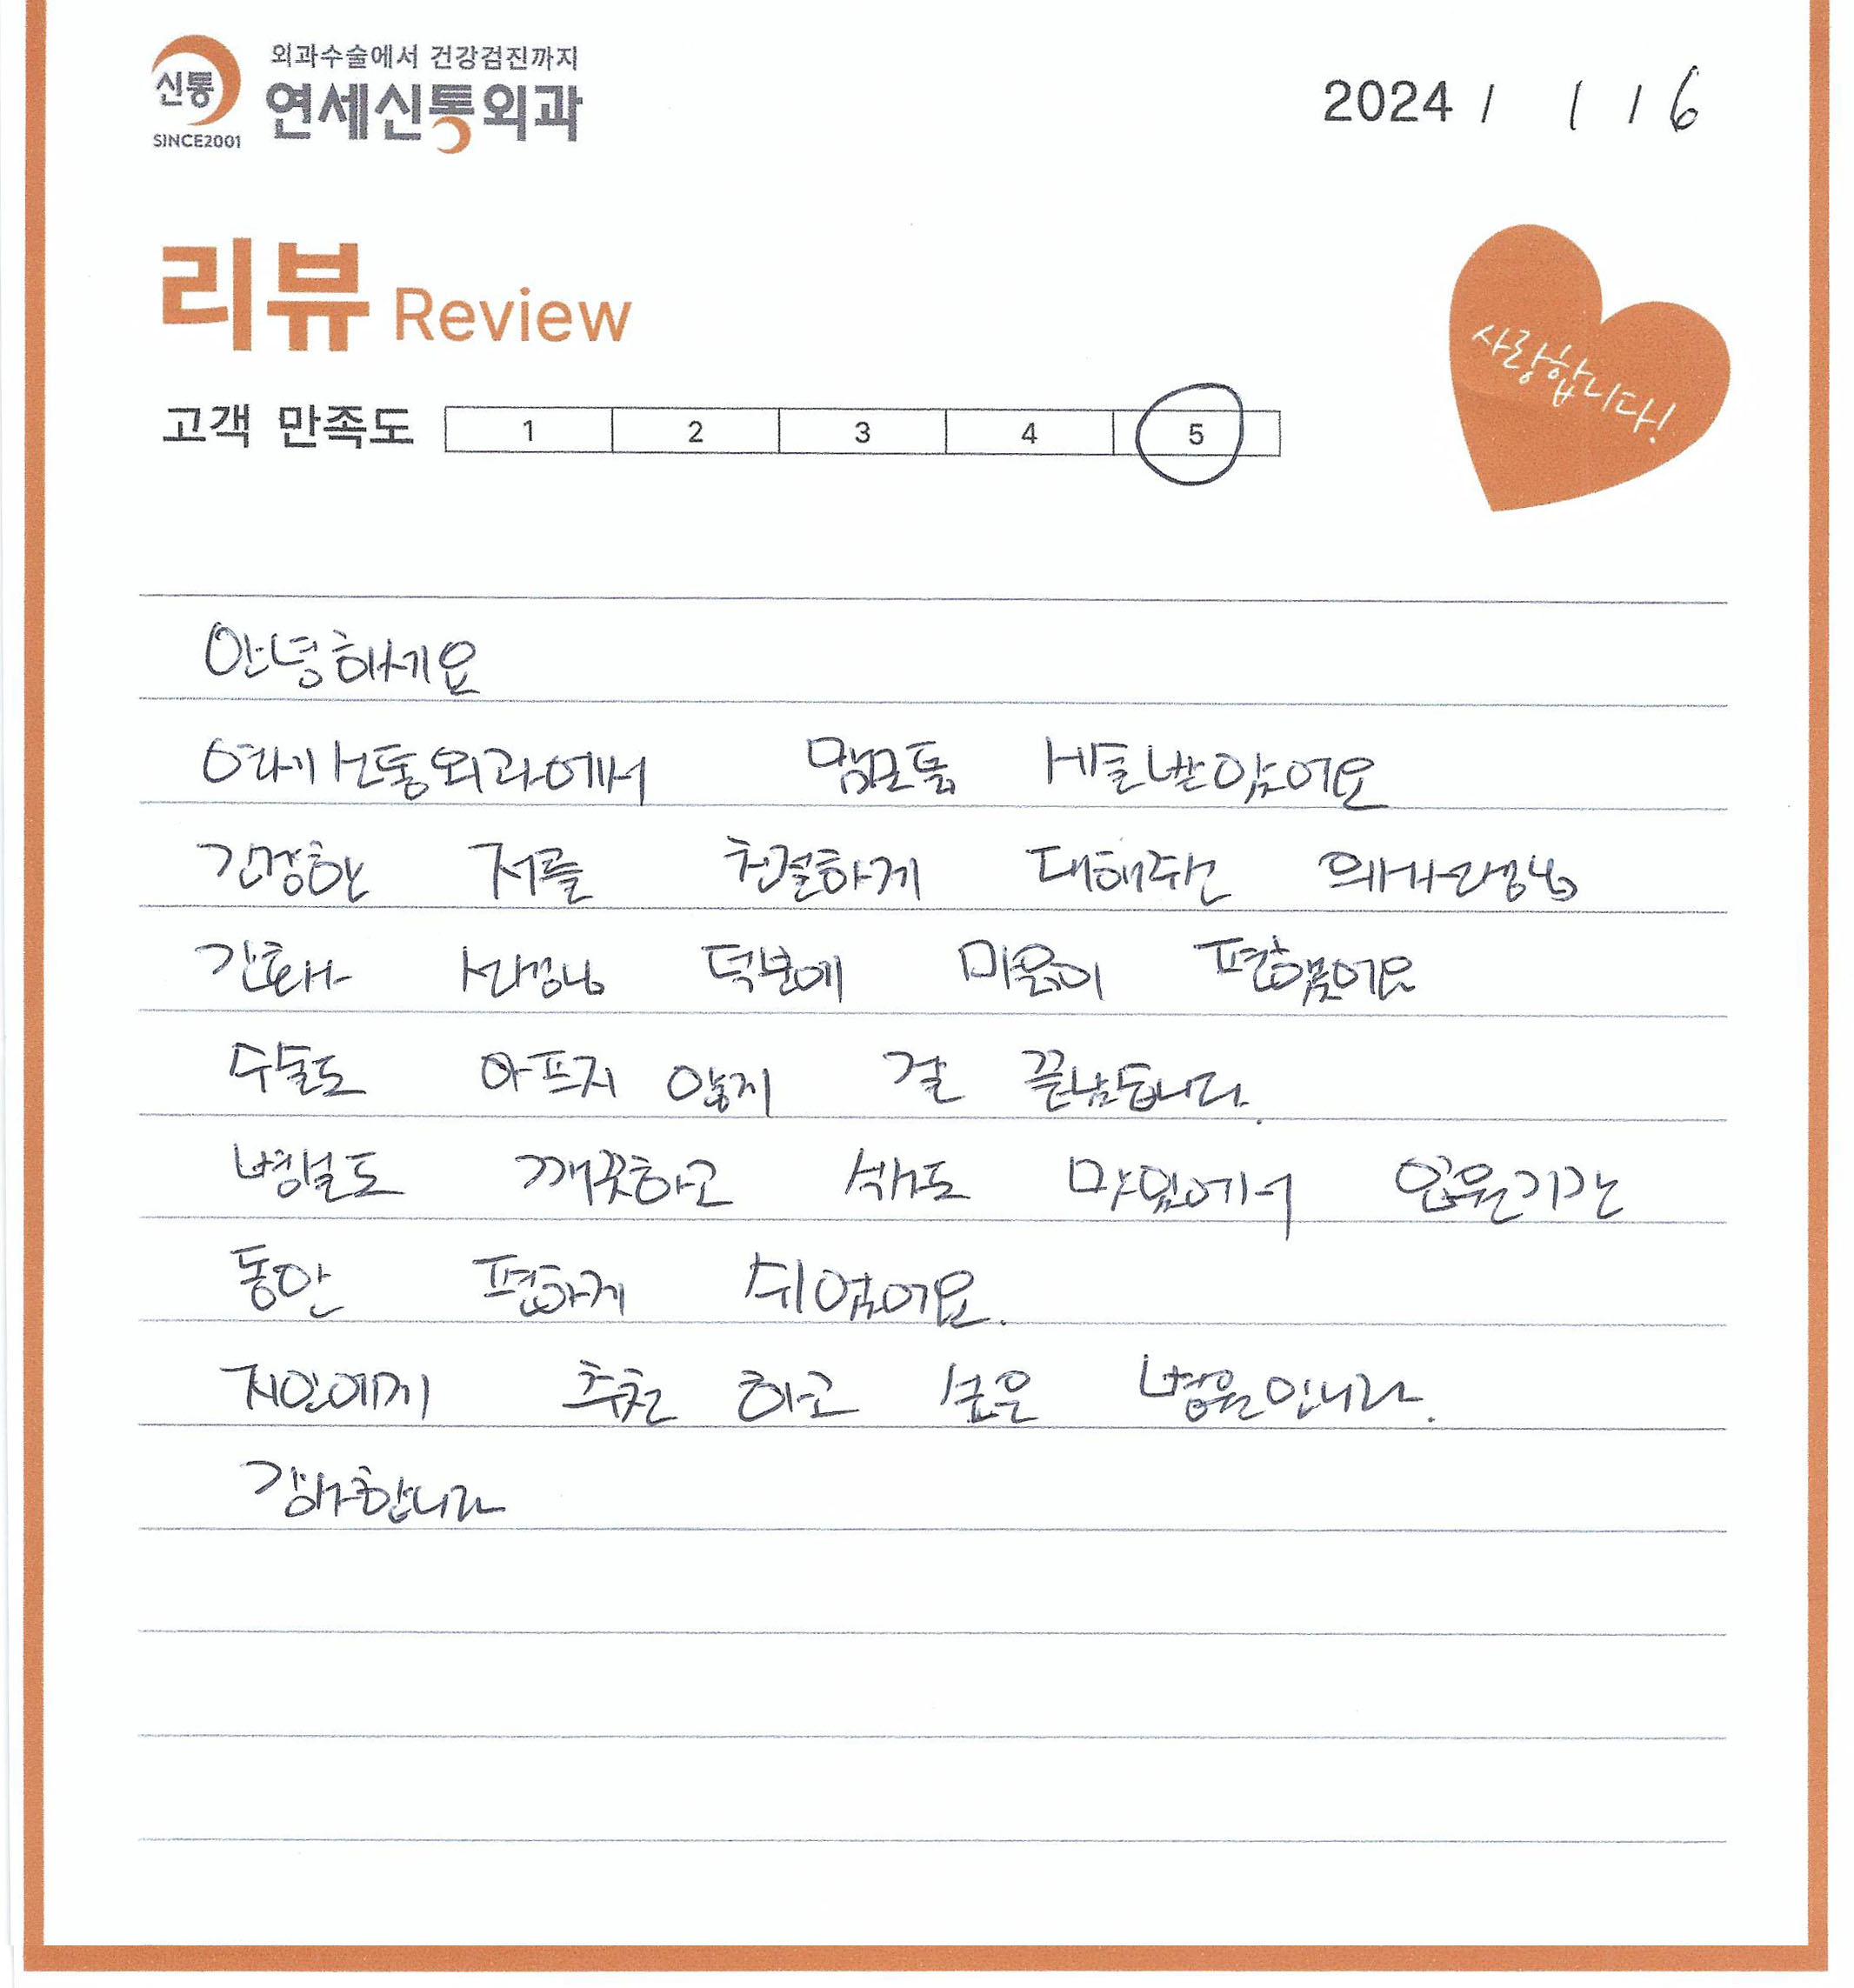 신통
SINCE2001
외과수술에서 건강검진까지
연세신통외과
2024 / 1 / 6
리뷰 Review
고객 만족도 1 2 3 4 5
사랑합니다!
안녕하세요
연세신통외과에서 맘모톰 시술받았어요
긴장한 저를 친절하게 대해주신 의사선생님
간호사 선생님 덕분에 마음이 편했어요
수술도 아프지 않게 잘 끝났습니다.
병실도 깨끗하고 식사도 맛있어서 입원기간
동안 편하게 쉬었어요.
지인에게 추천 하고 싶은 병원입니다.
감사합니다